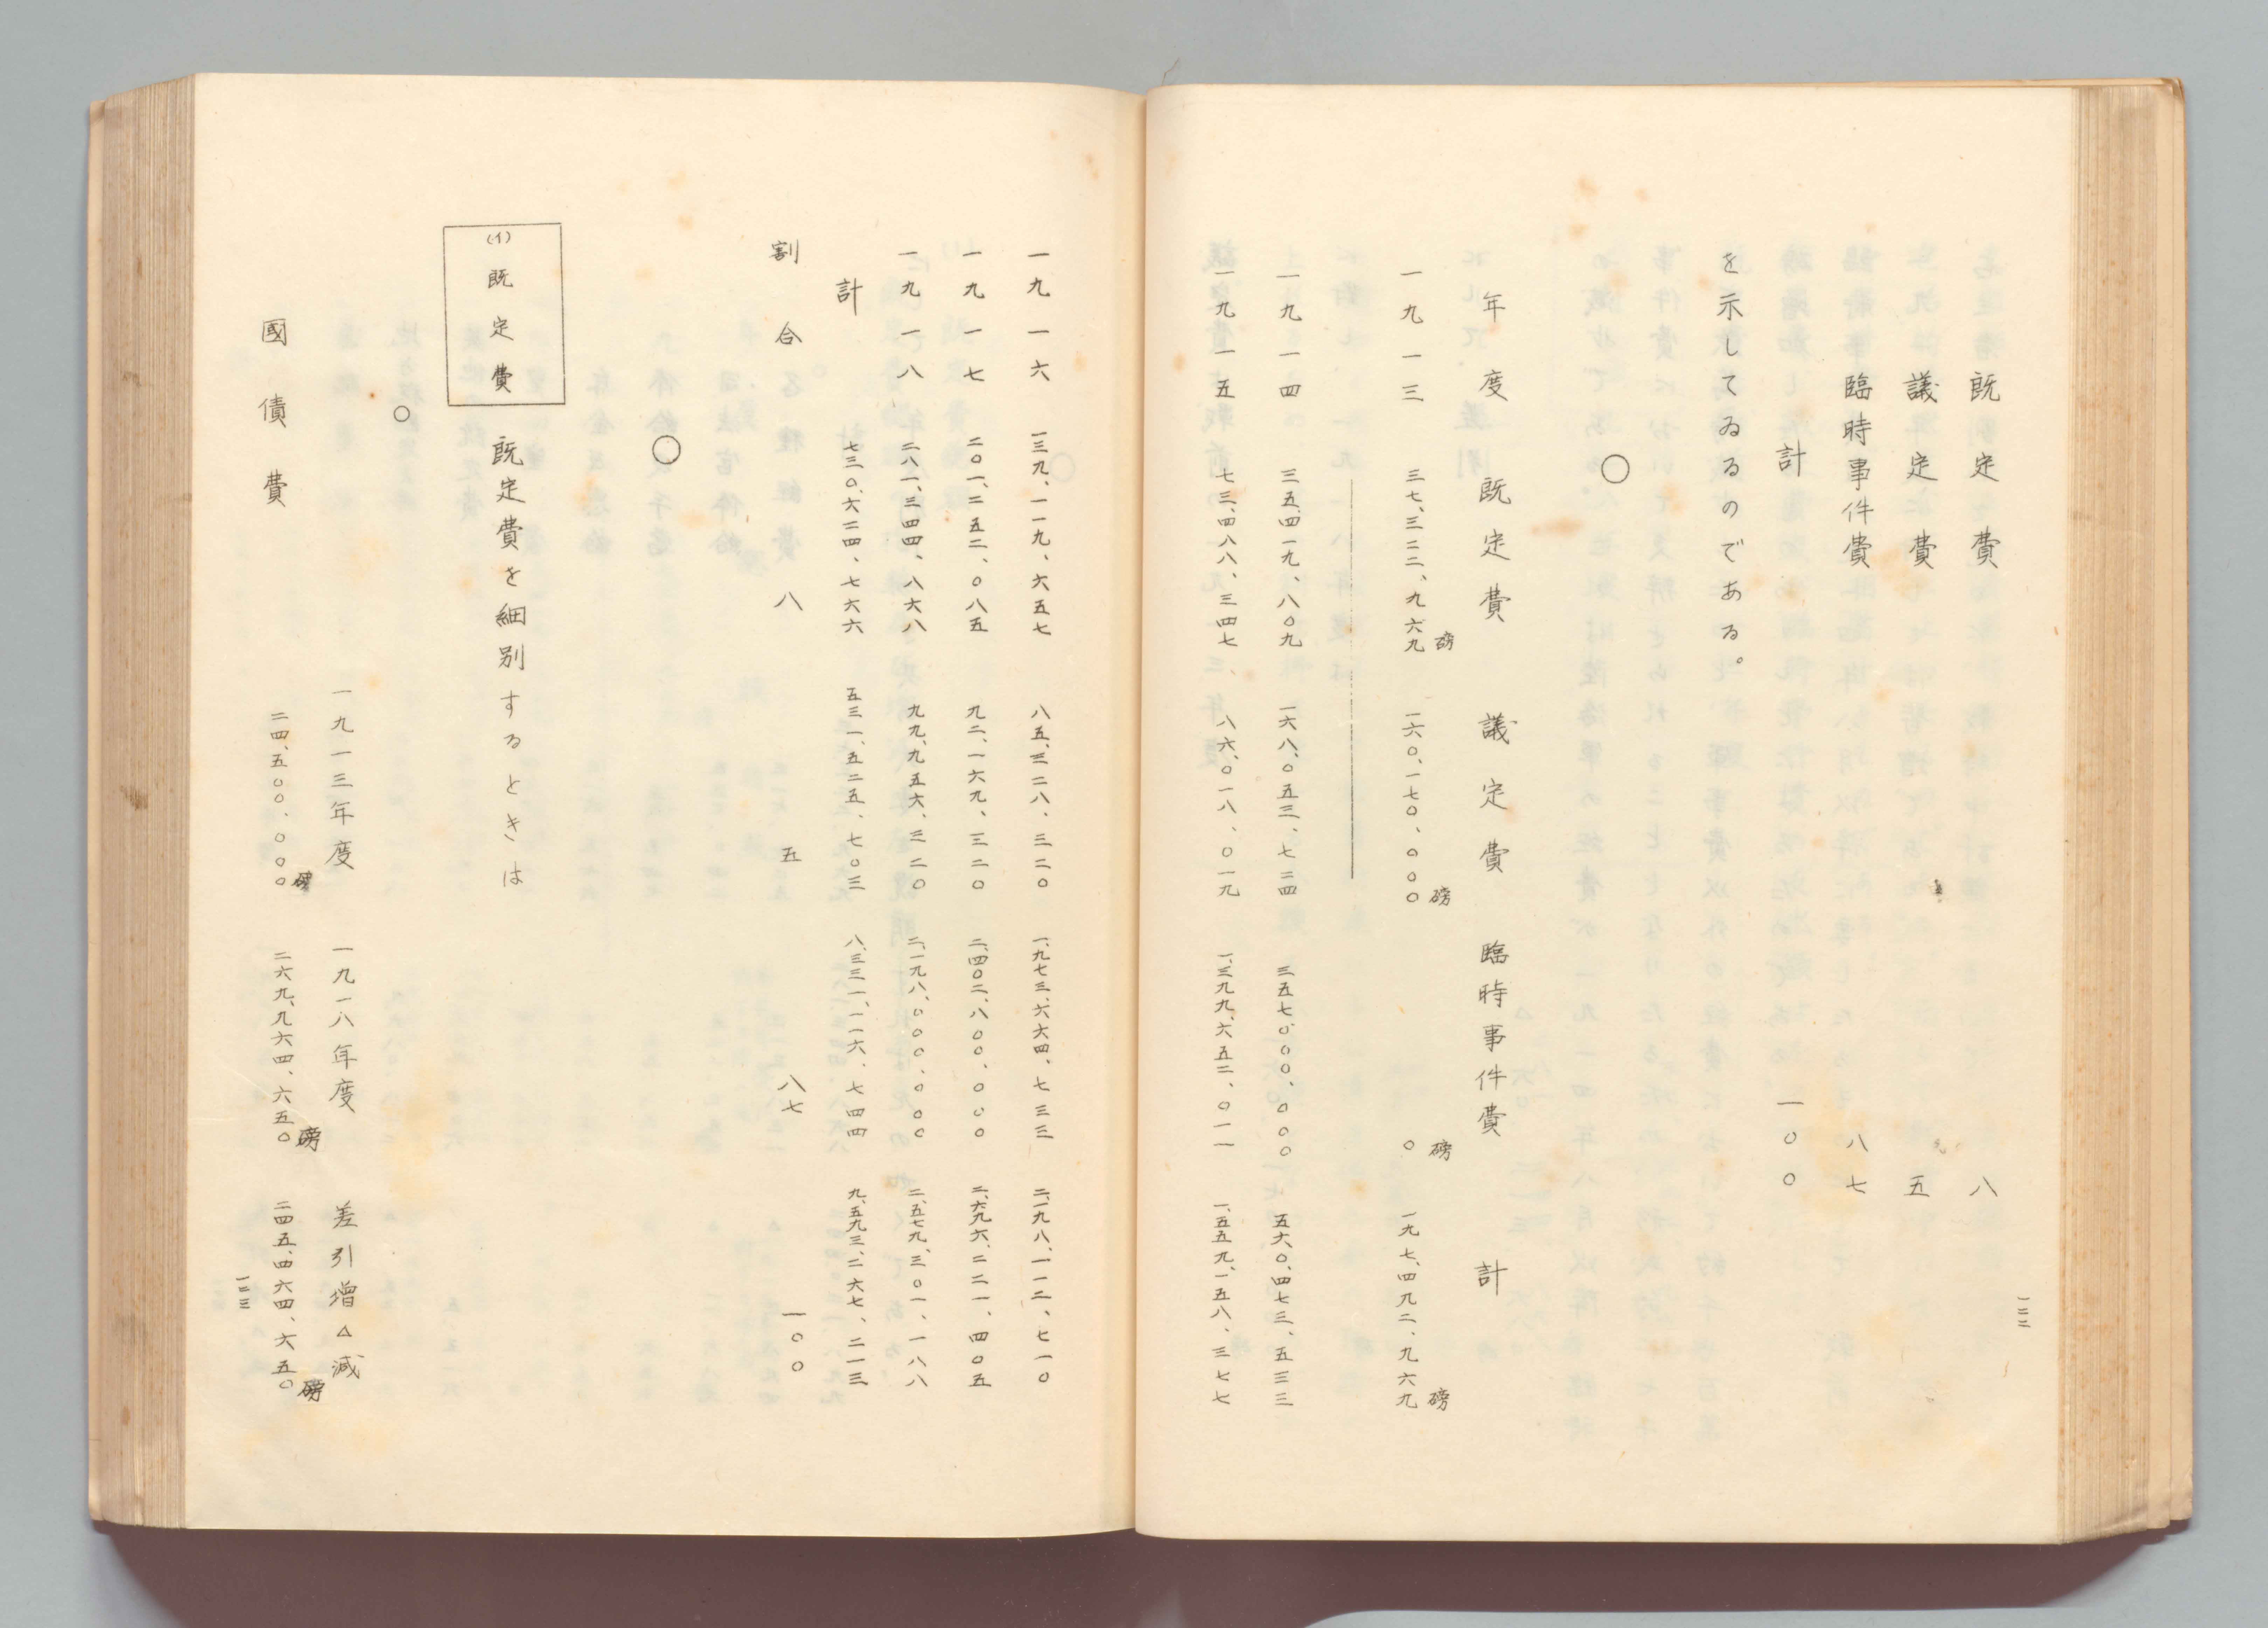 既定費 八
議定費 五
臨時事件費 八七
計 一〇〇
を示してゐるのである。
〇
年度 既定費 議定費 臨時事件費 計
一九一三 三七、三二二、九六九磅 一六〇、一七〇、〇〇〇磅 〇磅 一九七、四九二、九六九磅
一九一四 三五、四一九、八〇九 一六八、〇五三、七二四 三五七、〇〇〇、〇〇〇 五六〇、四七三、五三三
一九一五 七三、四八八、三四七 八六、〇一八、〇一九 一、三九九、六五二、〇一一 一、五五九、一五八、三七七
一二二
一九一六 一三九、一一九、六五七 八五、三二八、三二〇 一、九七三、六六四、七三三 二、一九八、一一二、七一〇
一九一七 二〇一、二五二、〇八五 九二、一六九、三二〇 二、四〇二、八〇〇、〇〇〇 二、六九六、二二一、四〇五
一九一八 二八一、三四四、八六八 九九、九五六、三二〇 二、一九八、〇〇〇、〇〇〇 二、五七九、三〇一、一八八
計 七三〇、六二四、七六六 五三一、五二五、七〇三 八、三三一、一一六、七四四 九、五九三、二六七、二一三
割合 八 五 八七 一〇〇
〇
(イ)既定費 既定費を細別するときは
〇
一九一三年度 一九一八年度 差引増△減
國債費 二四、五〇〇、〇〇〇磅 二六九、九六四、六五〇磅 二四五、四六四、六五〇磅
一二三